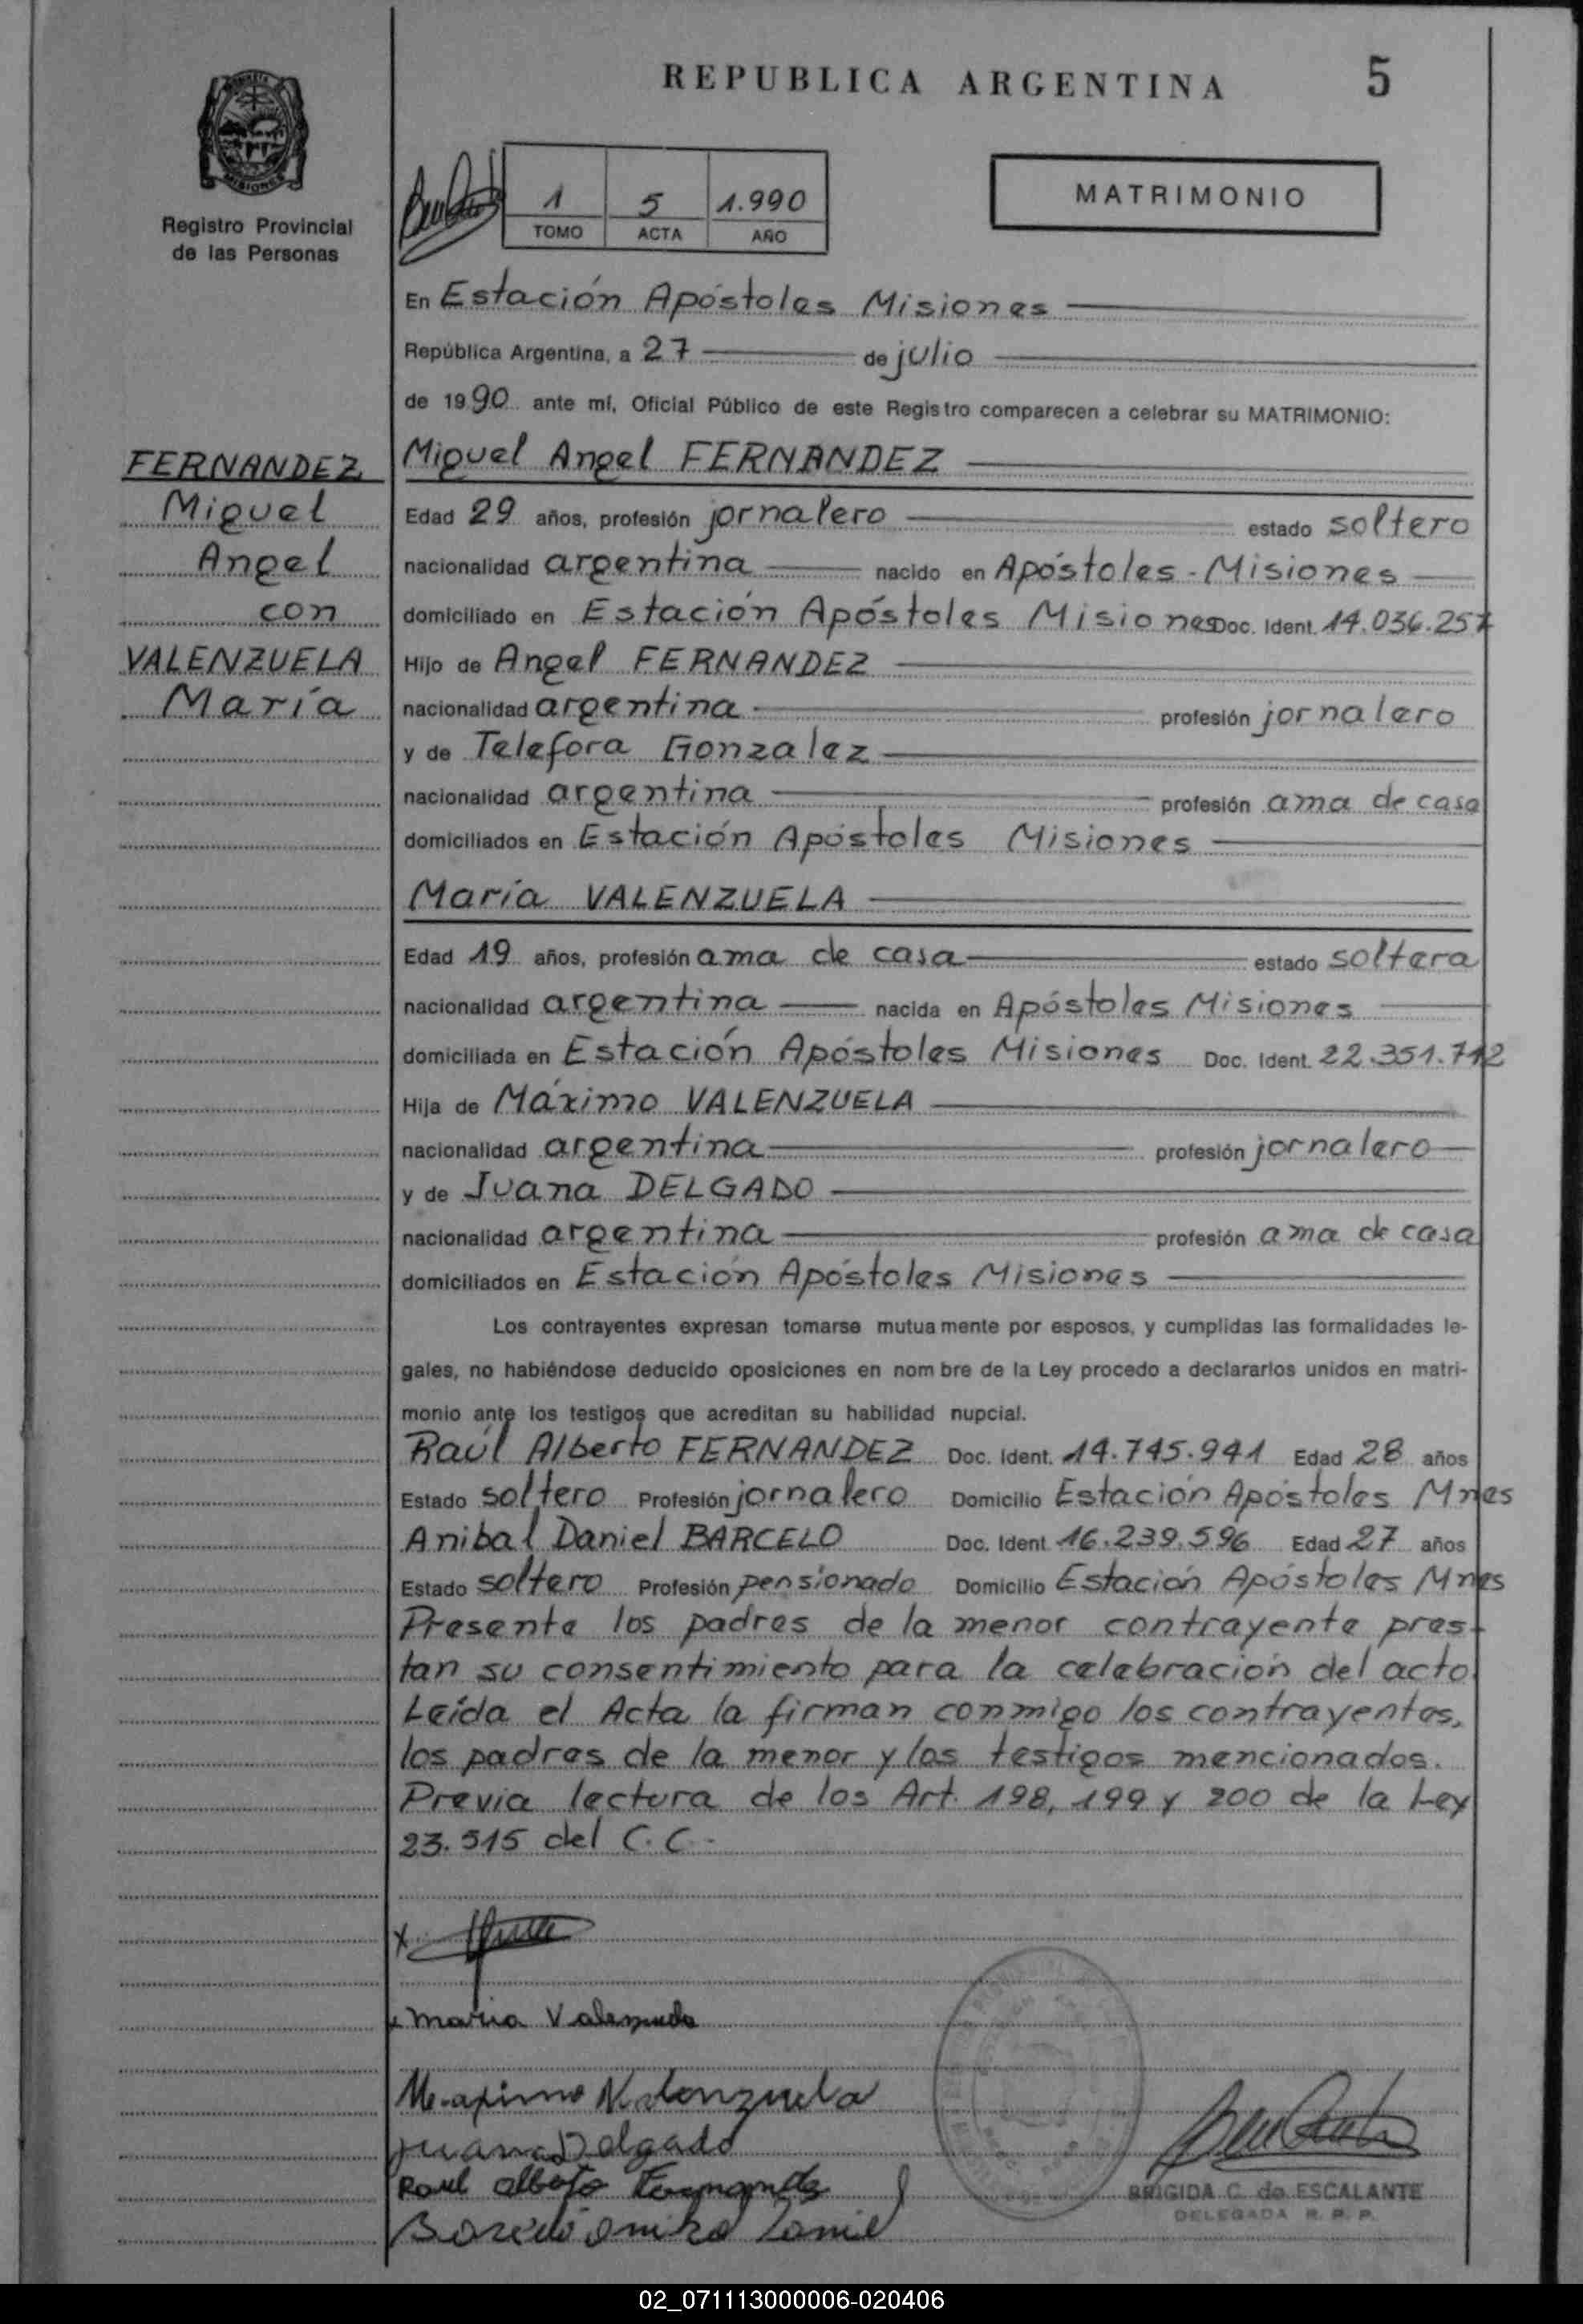 REPUBLICA ARGENTINA
5
MISIONES
Registro Provincial
de las Personas
1 5 1.990
TOMO ACTA AÑO
MATRIMONIO
En Estación Apóstoles Misiones
República Argentina, a 27 de julio
de 1990 ante mí, Oficial Público de este Registro comparecen a celebrar su MATRIMONIO:
FERNANDEZ
Miguel
Angel
con
VALENZUELA
María
Miguel Angel FERNANDEZ
Edad 29 años, profesión jornalero estado soltero
nacionalidad argentina nacido en Apóstoles - Misiones
domiciliado en Estación Apóstoles Misiones Doc. Ident. 14.036.257
Hijo de Angel FERNANDEZ
nacionalidad argentina profesión jornalero
y de Telefora Gonzalez
nacionalidad argentina profesión ama de casa
domiciliados en Estación Apóstoles Misiones
María VALENZUELA
Edad 19 años, profesión ama de casa estado soltera
nacionalidad argentina nacida en Apóstoles Misiones
domiciliada en Estación Apóstoles Misiones Doc. Ident. 22.351.712
Hija de Máximo VALENZUELA
nacionalidad argentina profesión jornalero
y de Juana DELGADO
nacionalidad argentina profesión ama de casa
domiciliados en Estación Apóstoles Misiones
Los contrayentes expresan tomarse mutuamente por esposos, y cumplidas las formalidades le-
gales, no habiéndose deducido oposiciones en nombre de la Ley procedo a declararlos unidos en matri-
monio ante los testigos que acreditan su habilidad nupcial.
Raúl Alberto FERNANDEZ Doc. Ident. 14.745.941 Edad 28 años
Estado soltero Profesión jornalero Domicilio Estación Apóstoles Mnes
Anibal Daniel BARCELO Doc. Ident 16.239.596 Edad 27 años
Estado soltero Profesión pensionado Domicilio Estación Apóstoles Mnes
Presente los padres de la menor contrayente pres-
tan su consentimiento para la celebración del acto.
Leída el Acta la firman conmigo los contrayentes,
los padres de la menor y los testigos mencionados.
Previa lectura de los Art. 198, 199 y 200 de la Ley
23.515 del C.C.-
x
x maria Valenzuela
Maximo Valenzuela
Juana Delgado
Raul alberto Fernandez
Barcelo Daniel
BRIGIDA C. de ESCALANTE
DELEGADA R. P. P.
02_071113000006-020406